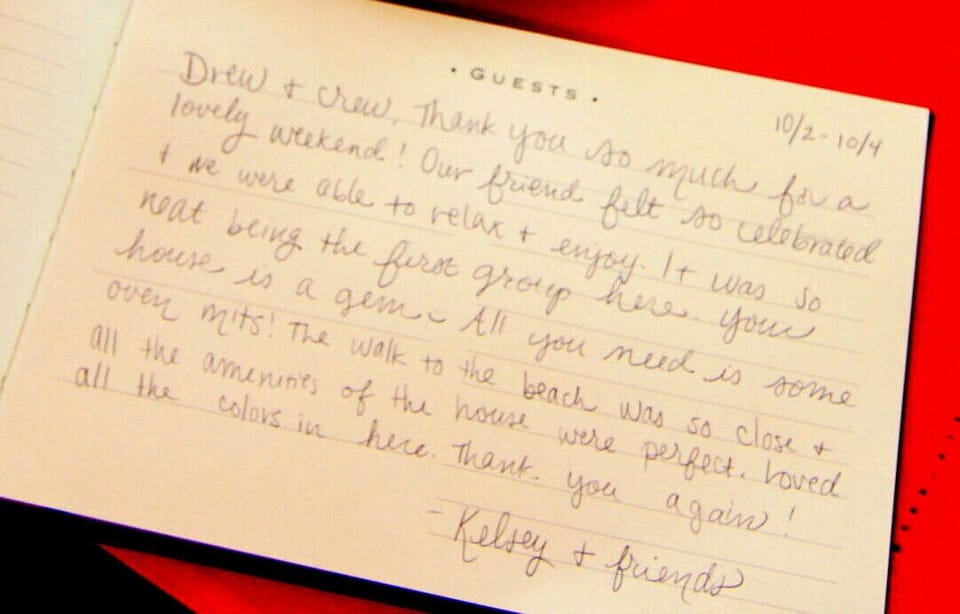 · GUESTS ·
10/2 - 10/4
Drew + crew, Thank you so much for a
lovely weekend! Our friend felt so celebrated
+ we were able to relax + enjoy. It was so
neat being the first group here. Your
house is a gem. All you need is some
oven mits! The walk to the beach was so close +
all the amenities of the house were perfect. Loved
all the colors in here. Thank you again!
- Kelsey + friends